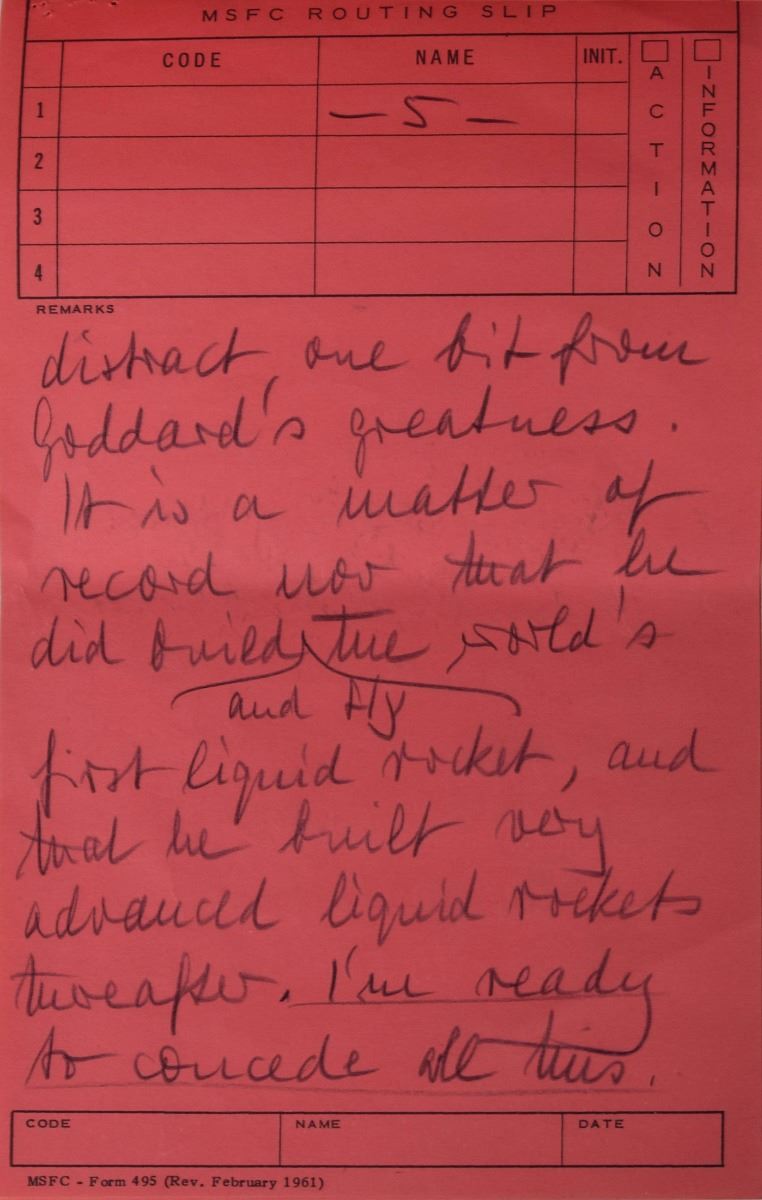 MSFC ROUTING SLIP
CODE NAME INIT. ACTION INFORMATION
1 — 5 —
2
3
4
REMARKS
distract, one bit from
Goddard's greatness.
It is a matter of
record now that he
did build the world's
and fly
first liquid rocket, and
that he built very
advanced liquid rockets
thereafter. I'm ready
to concede all this.
CODE NAME DATE
MSFC - Form 495 (Rev. February 1961)